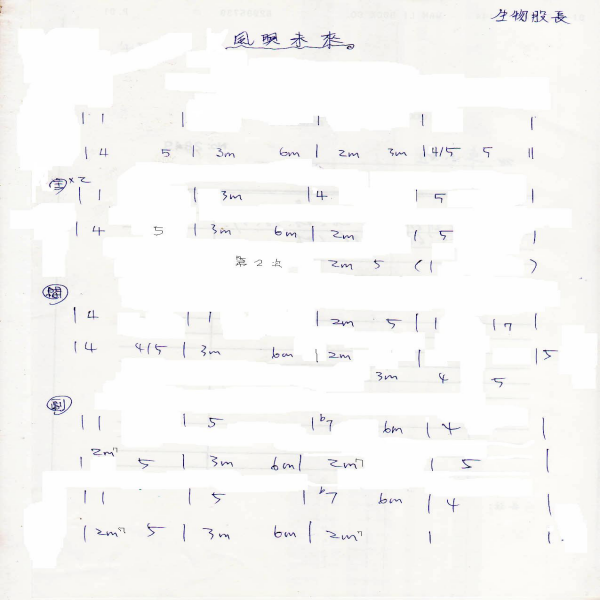 生物股長
風與未來。
| 1 | | | |
| 4 5 | 3m 6m | 2m 3m | 4/5 5 ||
主 ×2
| 1 | 3m | 4 | 5 |
| 4 5 | 3m 6m | 2m | 5 |
第2次 2m 5 (1 )
| 4 | 1 | 2m 5 | 1 17 |
| 4 4/5 | 3m 6m | 2m | | 5
3m 4 5
副
| 1 | 5 | b7 6m | 4 |
| 2m7 5 | 3m 6m | 2m7 | 5 |
| 1 | 5 | b7 6m | 4 |
| 2m7 5 | 3m 6m | 2m7 | | .